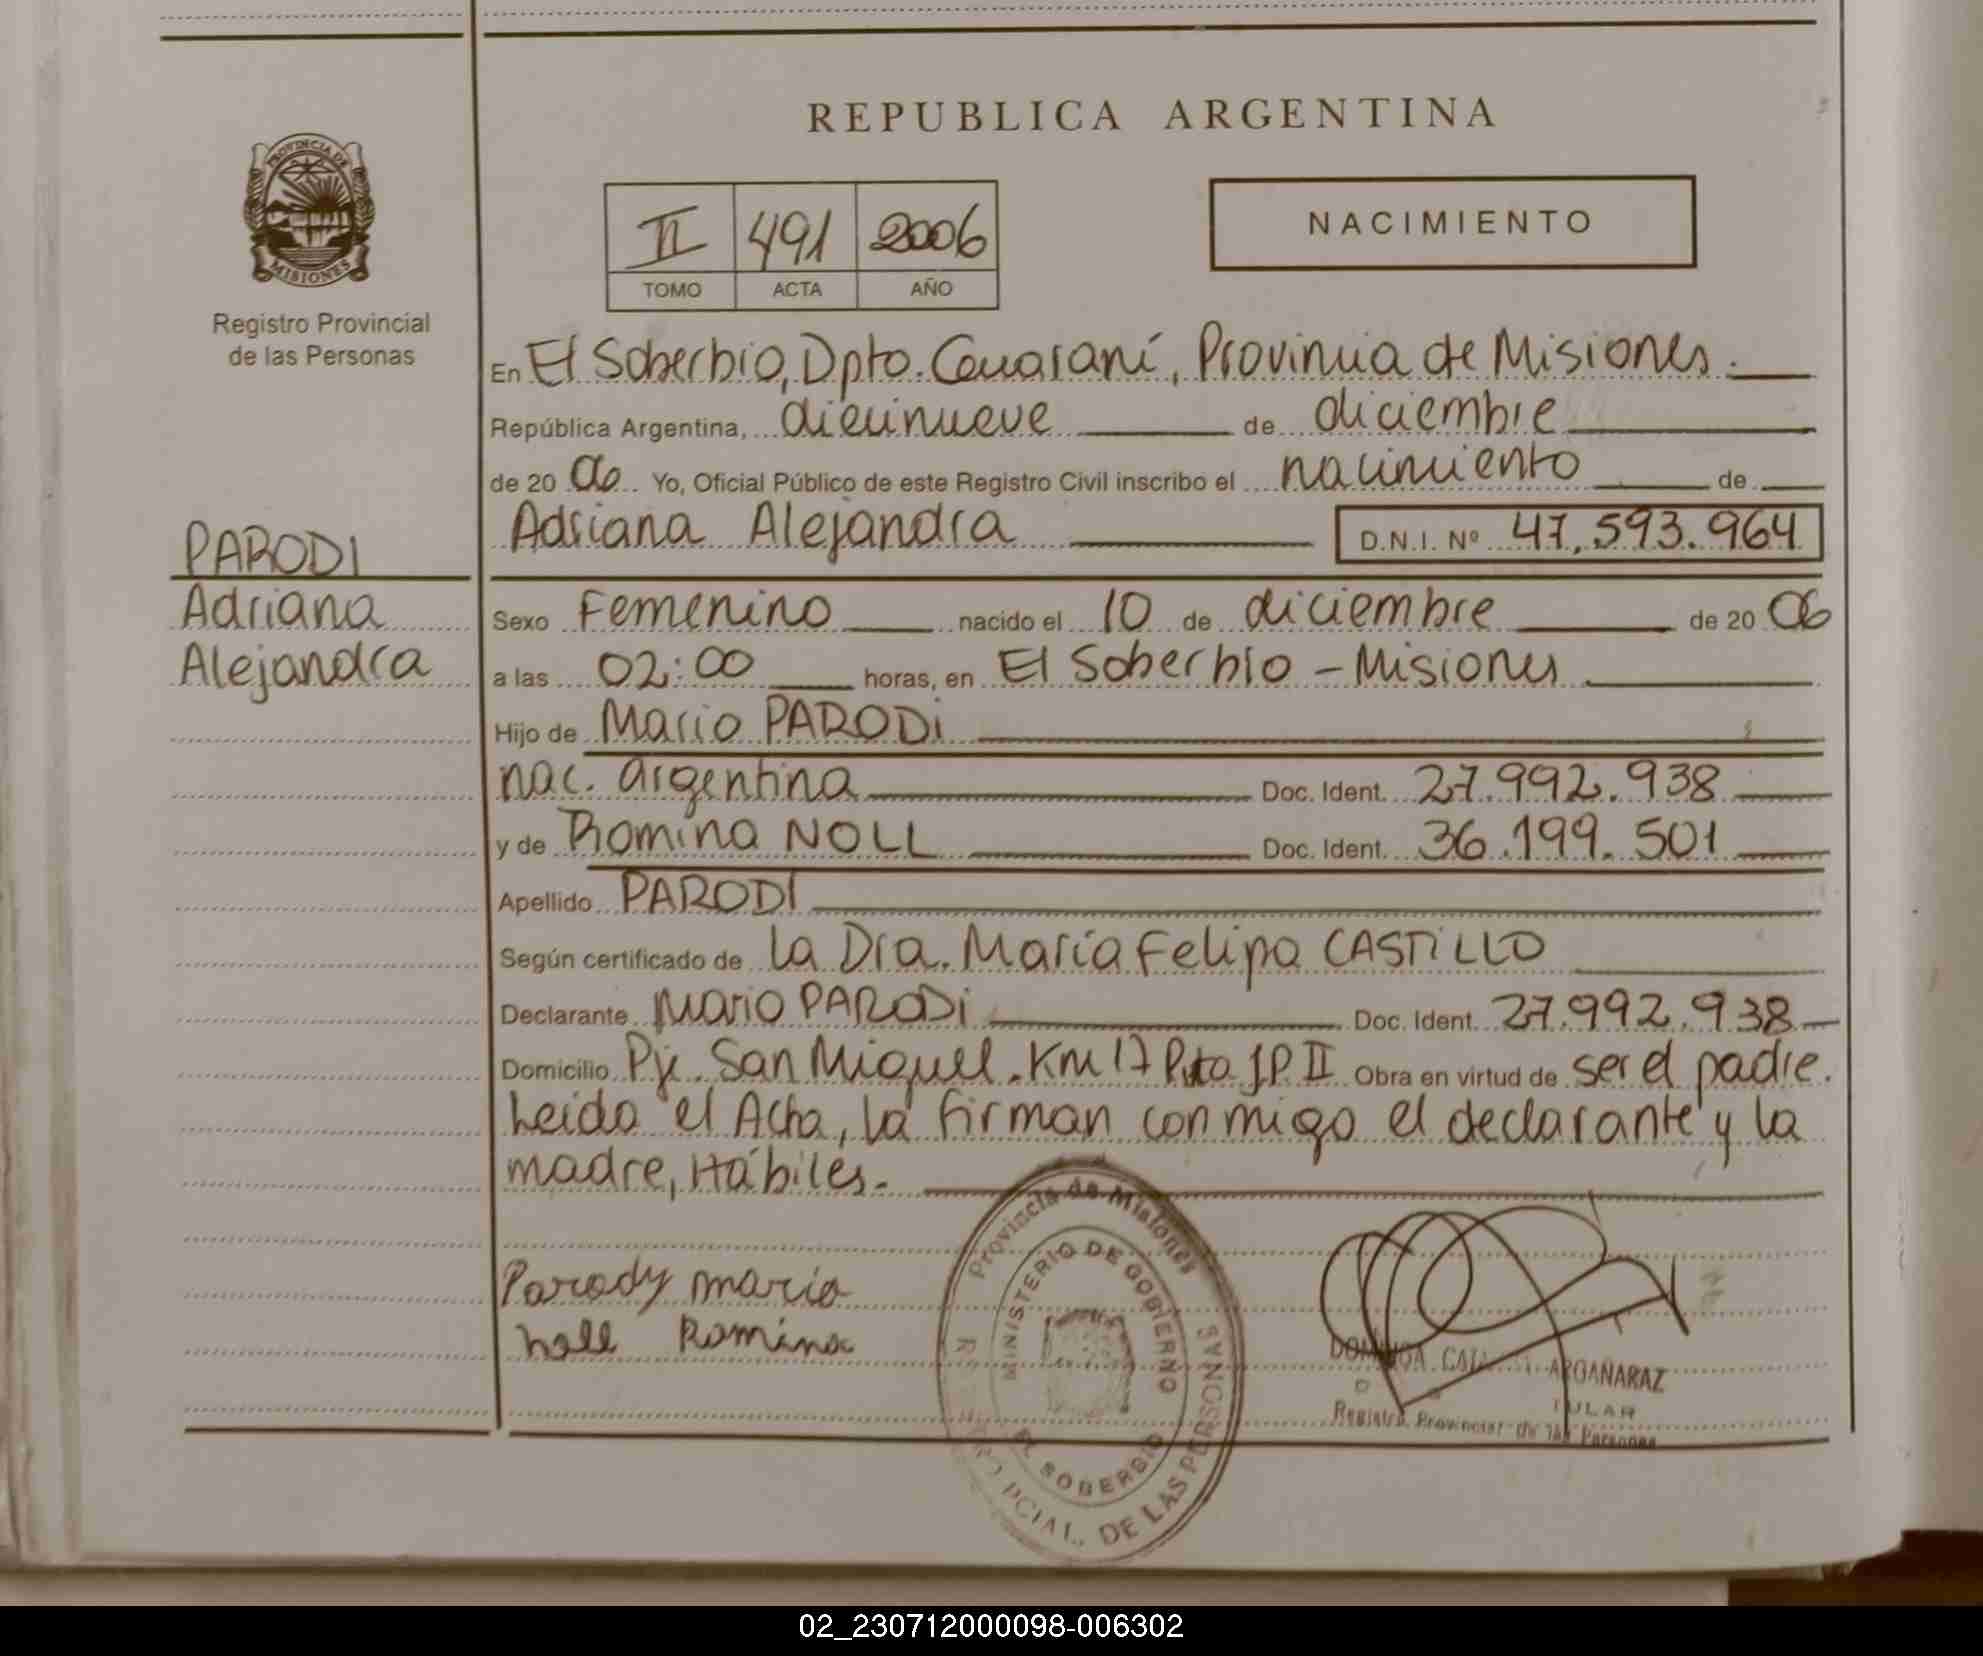 REPUBLICA ARGENTINA
PROVINCIA DE
MISIONES
Registro Provincial
de las Personas
II 491 2006
TOMO ACTA AÑO
NACIMIENTO
En El Soberbio, Dpto. Guaraní, Provincia de Misiones.
República Argentina, diecinueve de diciembre
de 20 06 Yo, Oficial Público de este Registro Civil inscribo el nacimiento de
Adriana Alejandra D.N.I. Nº 47.593.964
PARODI
Adriana
Alejandra
Sexo Femenino nacido el 10 de diciembre de 20 06
a las 02:00 horas, en El Soberbio - Misiones
Hijo de Mario PARODI
nac. argentina Doc. Ident. 27.992.938
y de Romina NOLL Doc. Ident. 36.199.501
Apellido PARODI
Según certificado de la Dra. María Felipa CASTILLO
Declarante Mario PARODI Doc. Ident. 27.992.938
Domicilio Pje. San Miguel. Km 17 Ruta J.P. II Obra en virtud de ser el padre.
Leida el Acta, la firman conmigo el declarante y la
madre, Hábiles.
Parody mario
noll Romina
Provincia de Misiones
MINISTERIO DE GOBIERNO
EL SOBERBIO
PCIAL. DE LAS PERSONAS
ARGAÑARAZ
Registro Provincial de las Personas
02_230712000098-006302